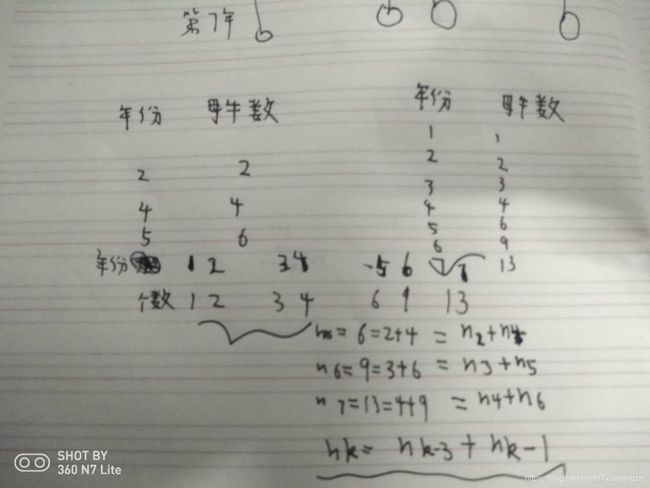 第7年
年份 母牛数 年份 母牛数
1 1
2 2
2 2
3 3
4 4
4 4
5 6
5 6
6 9
年份 1 2 3 4 5 6 7 13
个数 1 2 3 4 6 9 13
n5=6=2+4=n2+n4
n6=9=3+6=n3+n5
n7=13=4+9=n4+n6
nk=nk-3+nk-1
SHOT BY
360 N7 Lite
https://blog.csdn.net/ITxiaoangzai